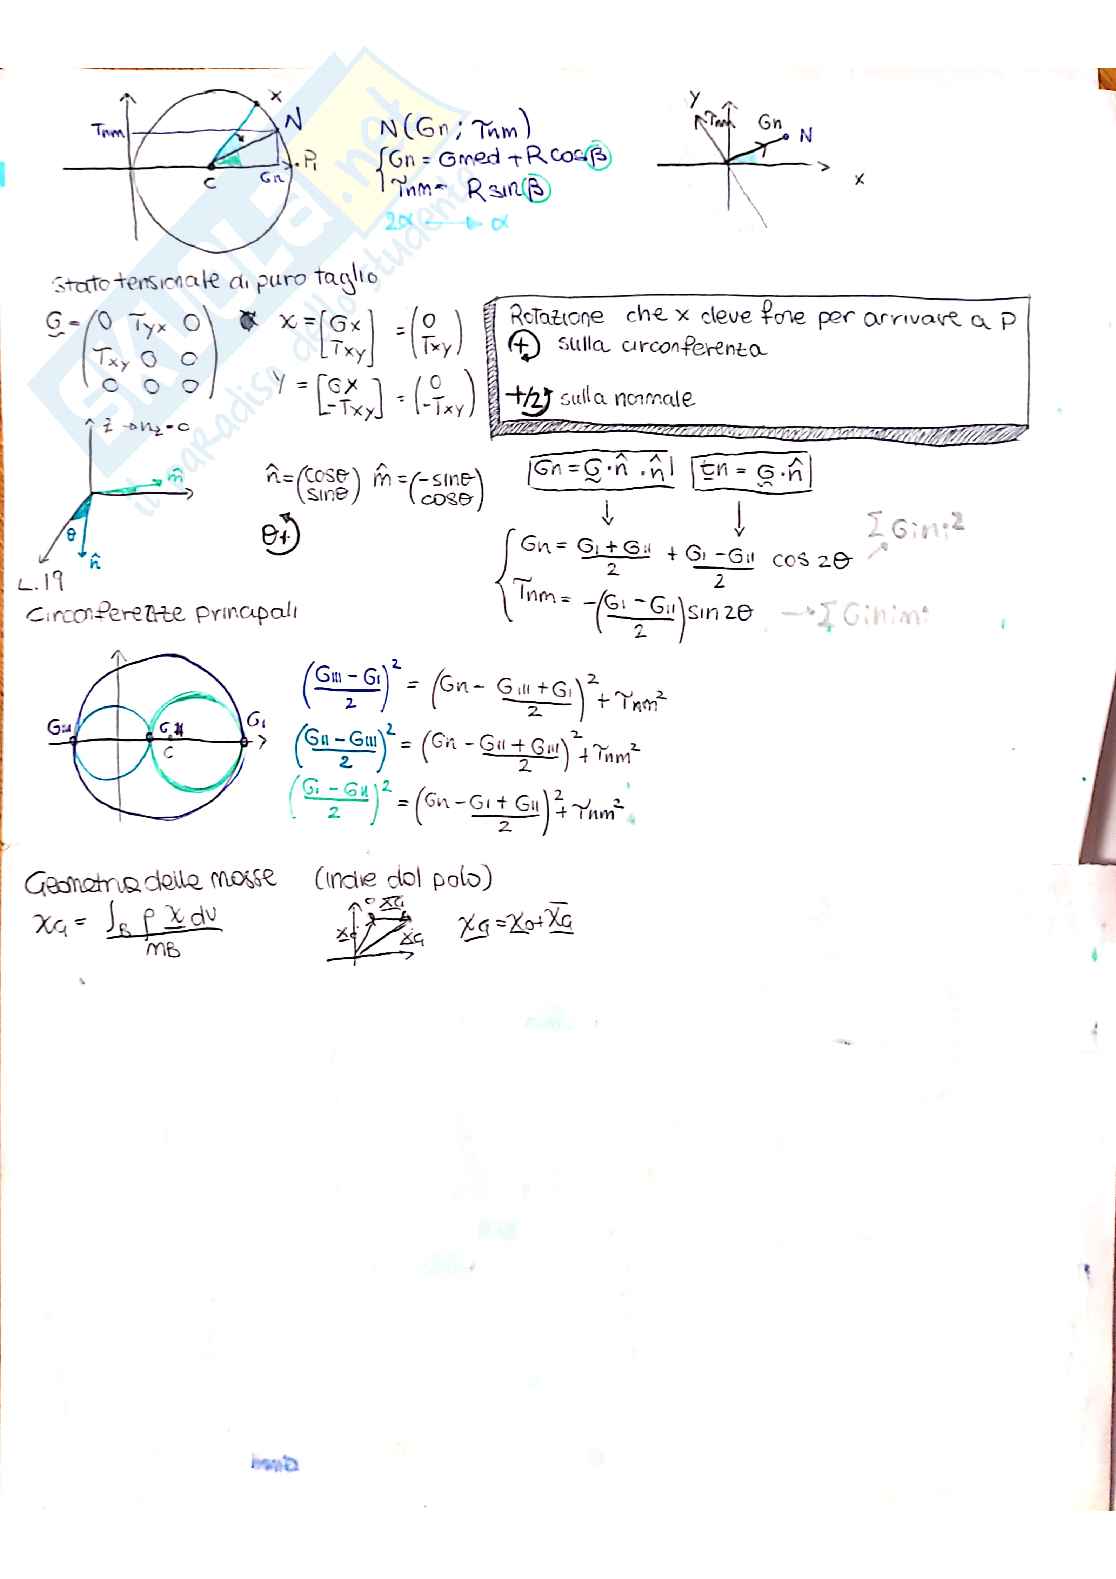 x
N
Tnm
C
Gn
P₁
N(Gn; Tnm)
Gn = Gmed + R cos β
Tnm = R sin β
2α → α
Y
Tnm
Gn
N
x
Stato tensionale di puro taglio
G = (0 Tyx 0
Txy 0 0
0 0 0)
x = [Gx Txy] = (0 Txy)
Y = [Gx -Txy] = (0 -Txy)
Rotazione che x deve fare per arrivare a P
+ sulla circonferenza
+/2 sulla normale
z → nz = 0
m̂
θ
n̂
n̂ = (cosθ sinθ) m̂ = (-sinθ cosθ)
θ+
Gn = G · n̂ · n̂
tn = G · n̂
Gn = (GI + GII)/2 + (GI - GII)/2 cos 2θ
Σ Gi ni²
Tnm = -((GI - GII)/2) sin 2θ → Σ Gi ni mi
L.19
Circonferenze principali
GIII
GII
GI
C
((GIII - GI)/2)² = (Gn - (GIII + GI)/2)² + Tnm²
((GII - GIII)/2)² = (Gn - (GII + GIII)/2)² + Tnm²
((GI - GII)/2)² = (Gn - (GI + GII)/2)² + Tnm²
Geometria delle masse (indie dal polo)
xG = ∫B ρ x dv / mB
xG
xG
xG = x0 + x̄G
SKUOLA.net
il paradiso dello studente